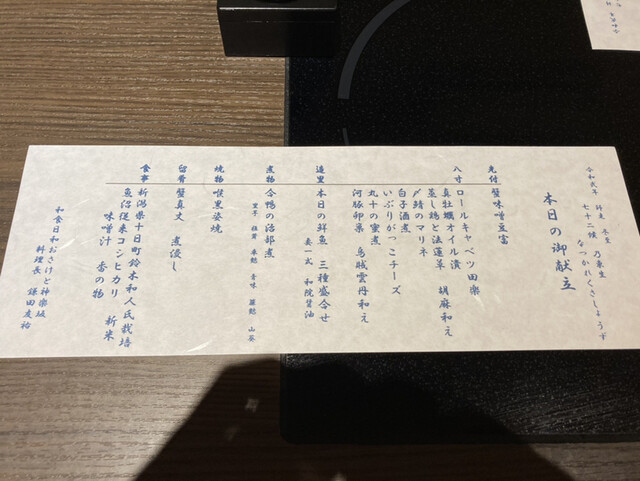 令和弐年 師走 冬至
七十二候 乃東生
なつかれくさしょうず
本日の御献立
先付 蟹味噌豆富
八寸 ロールキャベツ田楽
真牡蠣オイル漬
蒸し鶏と法蓮草 胡麻和え
〆鯖のマリネ
白子酒煮
いぶりがっこチーズ
丸十の蜜煮
河豚卵巣 烏賊雲丹和え
造里 本日の鮮魚 三種盛合せ
妻一式 和院醤油
煮物 合鴨の治部煮
里芋 椎茸 春菊 青味 蓮麩 山葵
焼物 喉黒姿焼
留肴 蟹真丈 煮凍し
食事 新潟県十日町鈴木和人氏栽培
魚沼従来コシヒカリ 新米
味噌汁 香の物
和食日和おさけと神楽坂
料理長 鎌田友祐